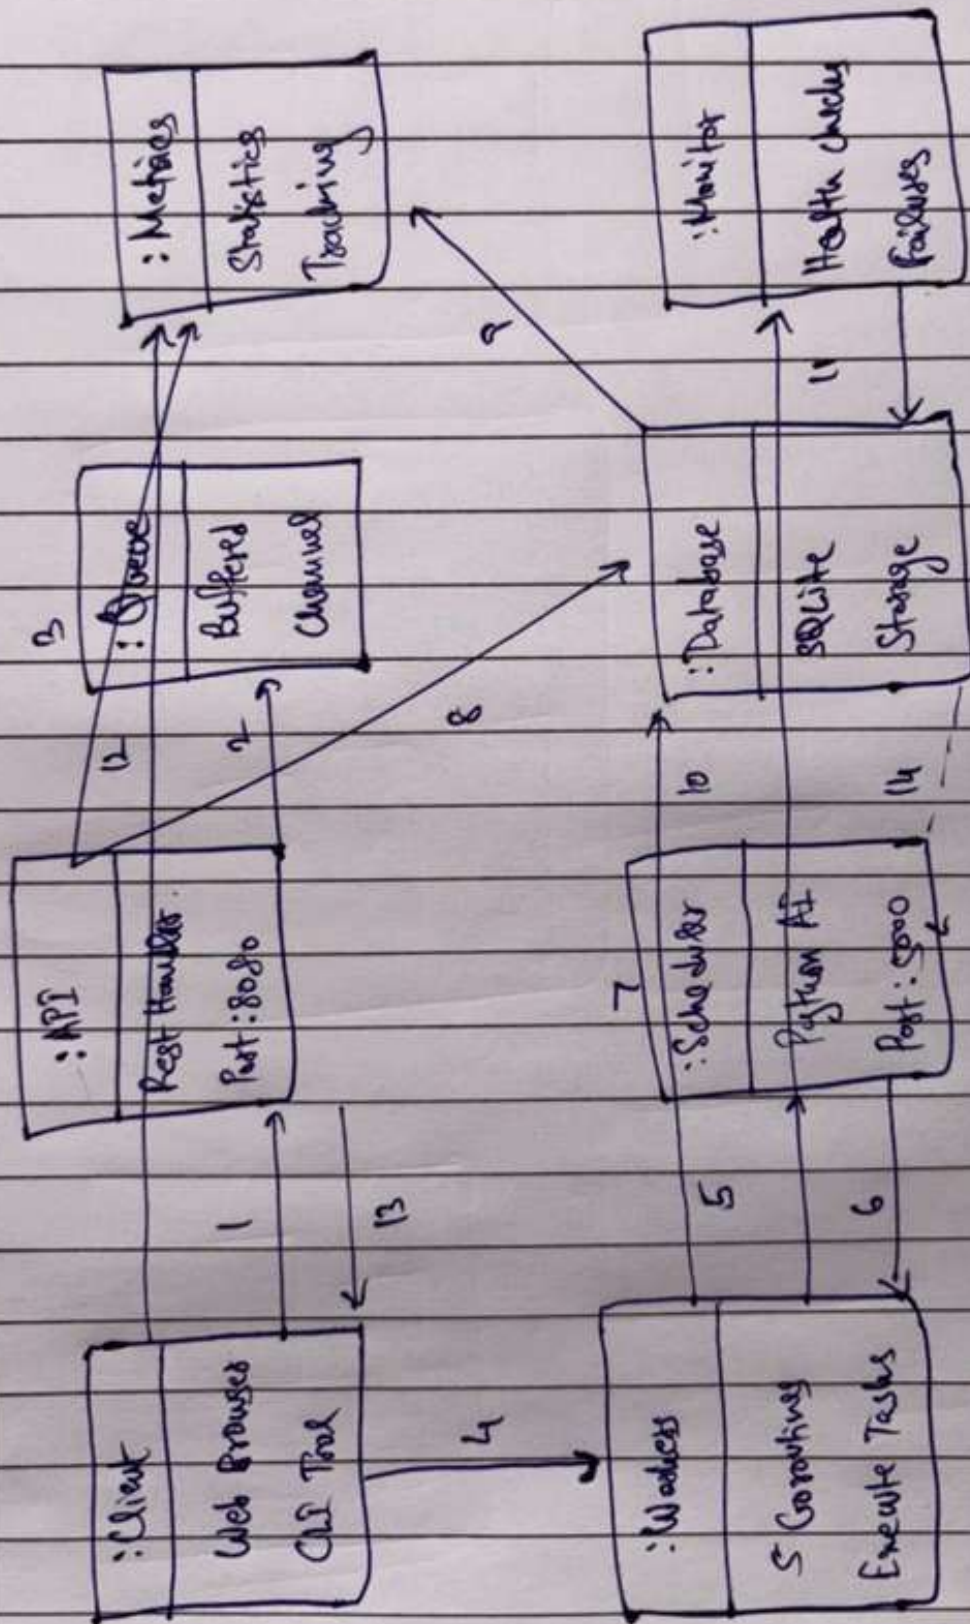 :Client
Web Browser
CLI Tool
1
13
4
:API
Rest Handler.
Port:8080
12
2
3
:Queue
Buffered
Channel
8
:Metrics
Statistics
Tracking
9
:Workers
5 Goroutines
Execute Tasks
5
6
7
:Scheduler
Python AI
Port:5000
10
14
:Database
SQLite
Storage
11
:Monitor
Health checks
Failures